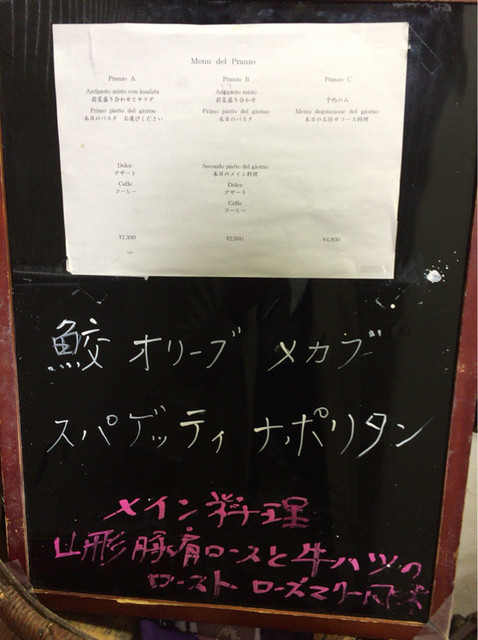 Menu del Pranzo
Pranzo A
Pranzo B
Pranzo C
Antipasto misto con insalata
前菜盛り合わせとサラダ
Primo piatto del giorno
本日のパスタ お選びください
Dolce
デザート
Caffe
コーヒー
¥1,500
Antipasto misto
前菜盛り合わせ
Primo piatto del giorno
本日のパスタ
Secondo piatto del giorno
本日のメイン料理
Dolce
デザート
Caffe
コーヒー
¥2,500
予約のみ
Menu degustazione del giorno
本日のお任せコース料理
¥4,800
鮫 オリーブ メカブ
スパゲッティ ナポリタン
メイン料理
山形豚肩ロースと牛ハツの
ロースト ローズマリー風味